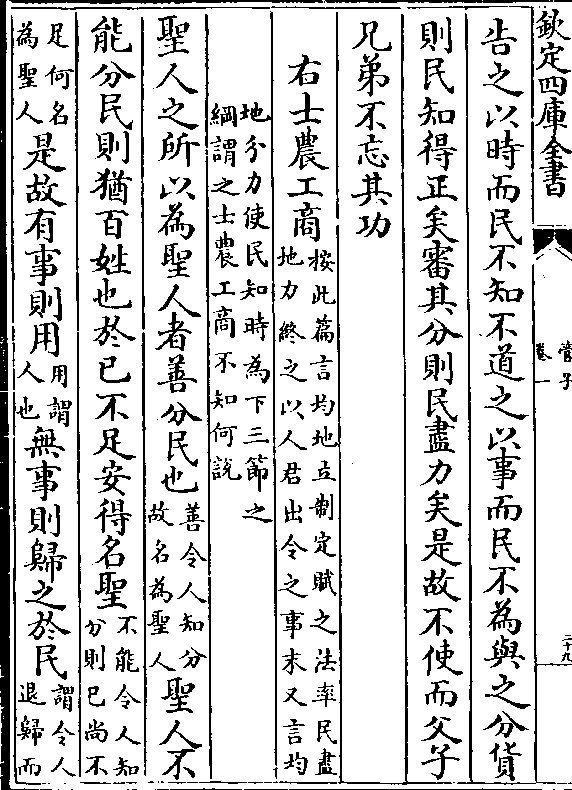 欽定四庫全書
管子
卷一
二十九
告之以時而民不知不道之以事而民不為與之分貨
則民知得正矣審其分則民盡力矣是故不使而父子
兄弟不忘其功
右士農工商
按此篇言均地立制定賦之法率民盡
地力終之以人君出令之事末又言均
地分力使民知時為下三節之
綱謂之士農工商不知何說
聖人之所以為聖人者善分民也
善令人知分
故名為聖人
聖人不
能分民則猶百姓也於已不足安得名聖
不能令人知
分則已尚不
足何名
為聖人
是故有事則用
用謂
人也
無事則歸之於民
謂令人
退歸而